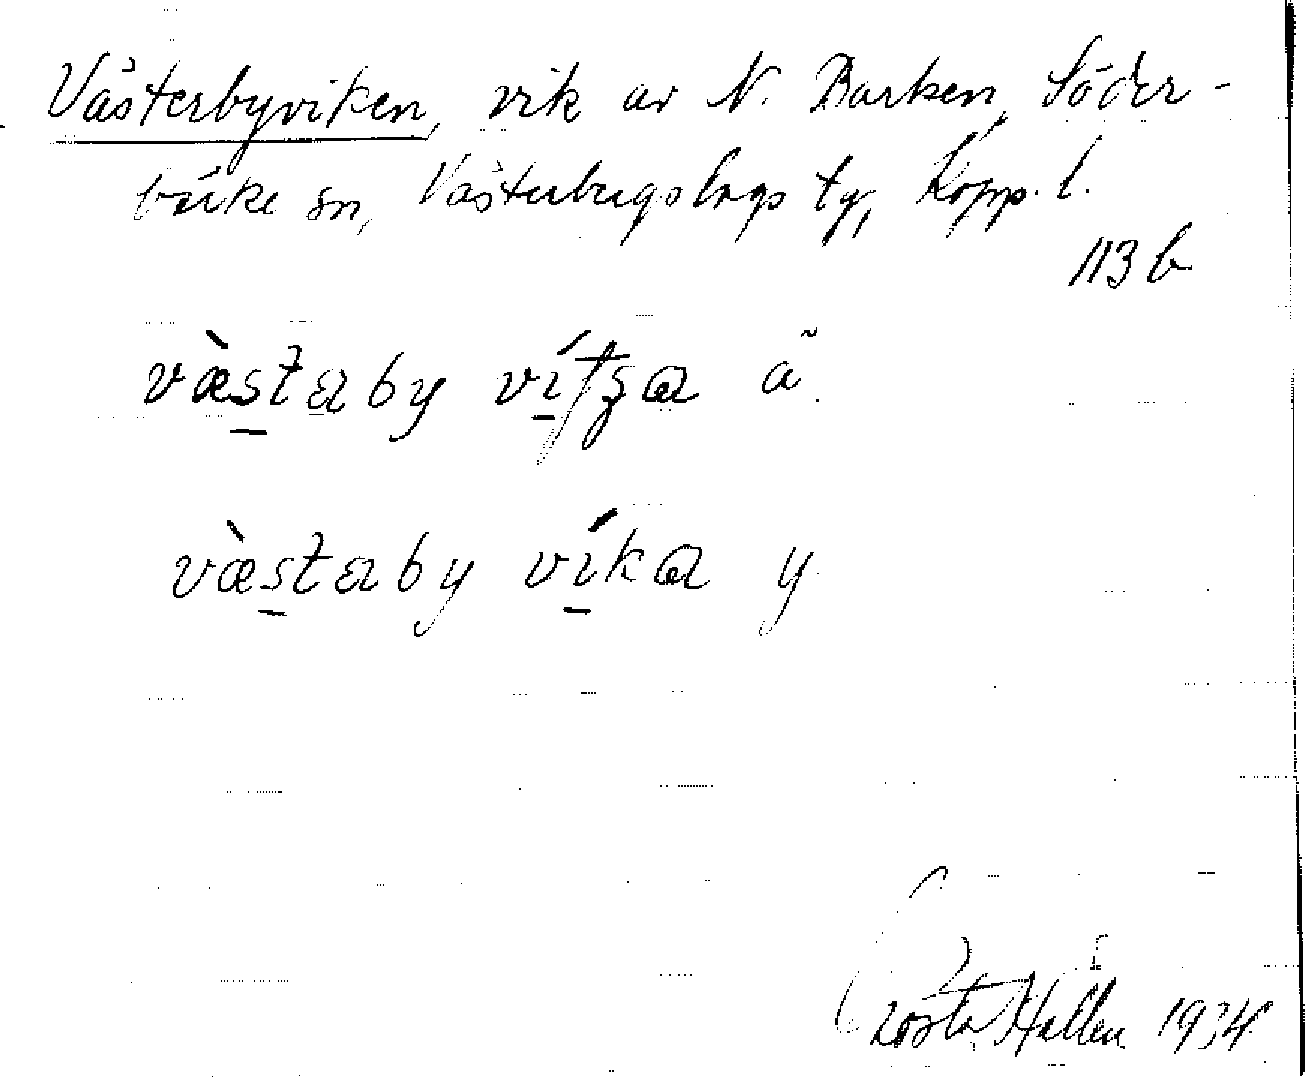 Västerbyviken, vik av N. Barken, Söder-
bärke sn, Västerbergslags tg, Kopp. l.
113 b
væ̀staby vítʃa ã
væ̀staby víka y
Gösta Hallén 1934